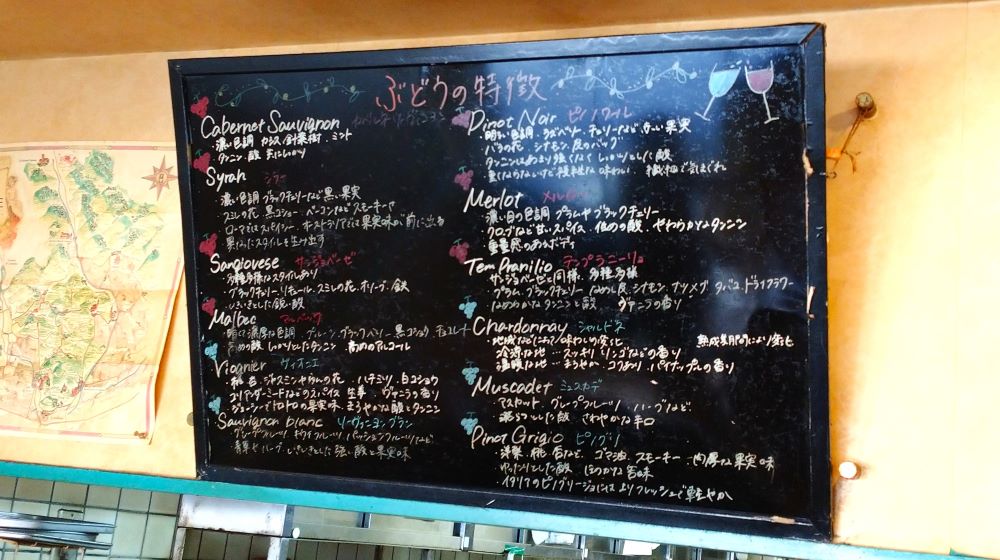 ぶどうの特徴
Cabernet Sauvignon
濃い色調 カシス 針葉樹 ミント
タンニン・酸 共にしっかり
Syrah シラー
濃い色調 ブラックチェリーなど黒い果実
スミレの花 黒コショウ ベーコンなどスモーキーや
ローマではスパイシー オーストラリアでは果実味が前に出る
異なったスタイルを生み出す
Sangiovese サンジョベーゼ
・多種多様なスタイルあり
・ブラックチェリー・リキュール スミレの花 オリーブ 鉄
・いきいきとした強い酸
Malbec マルベック
・暗く濃厚な色調 プルーン ブラックベリー 黒コショウ チョコレート
・高めの酸 しっかりとしたタンニン 高めのアルコール
Viognier ヴィオニエ
・桃 杏 ジャスミンや の花 ハチミツ 白コショウ
コリアンダーシードなどのスパイス 生姜 ヴァニラの香り
・ジューシーでトロトロの果実味 まろやかな酸とタンニン
Sauvignon blanc ソーヴィニヨン ブラン
グレープフルーツ キウイフルーツ パッションフルーツなど
青草やハーブ いきいきとした強い酸と果実味
Pinot Noir ピノ ノワール
・明るい色調 ラズベリー チェリーなど赤い果実
バラの花 シナモン 皮のバッグ
タンニンはあまり強くなく しっかりとした酸
・重くならないけど複雑な味わい 繊細で気まぐれ
Merlot メルロー
濃い目の色調 プラムやブラックチェリー
クローブなど甘いスパイス 低めの酸 やわらかなタンニン
重量感のあるボディ
Tempranilio テンプラニーリョ
サンジョベーゼと同様 多種多様
・プラム ブラックチェリー なめし皮 シナモン ナツメグ タバコ ドライフラワー
・なめらかなタンニンと酸 ヴァニラの香り
Chardonnay シャルドネ
・地域などによって味わいの変化 熟成期間により変化
冷涼な地…スッキリ リンゴなどの香り
温暖な地…まろやか コクあり パイナップルの香り
Muscadet ミュスカデ
・マスカット グレープフルーツ ハーブなど
・溌らつとした酸 さわやかな辛口
Pinot Grigio ピノ グリ
・洋梨 桃 杏など ゴマ油 スモーキー 肉厚な果実味
ゆったりとした酸 ほのかな苦味
・イタリアのピノ グリージョにはよりフレッシュで軽やか